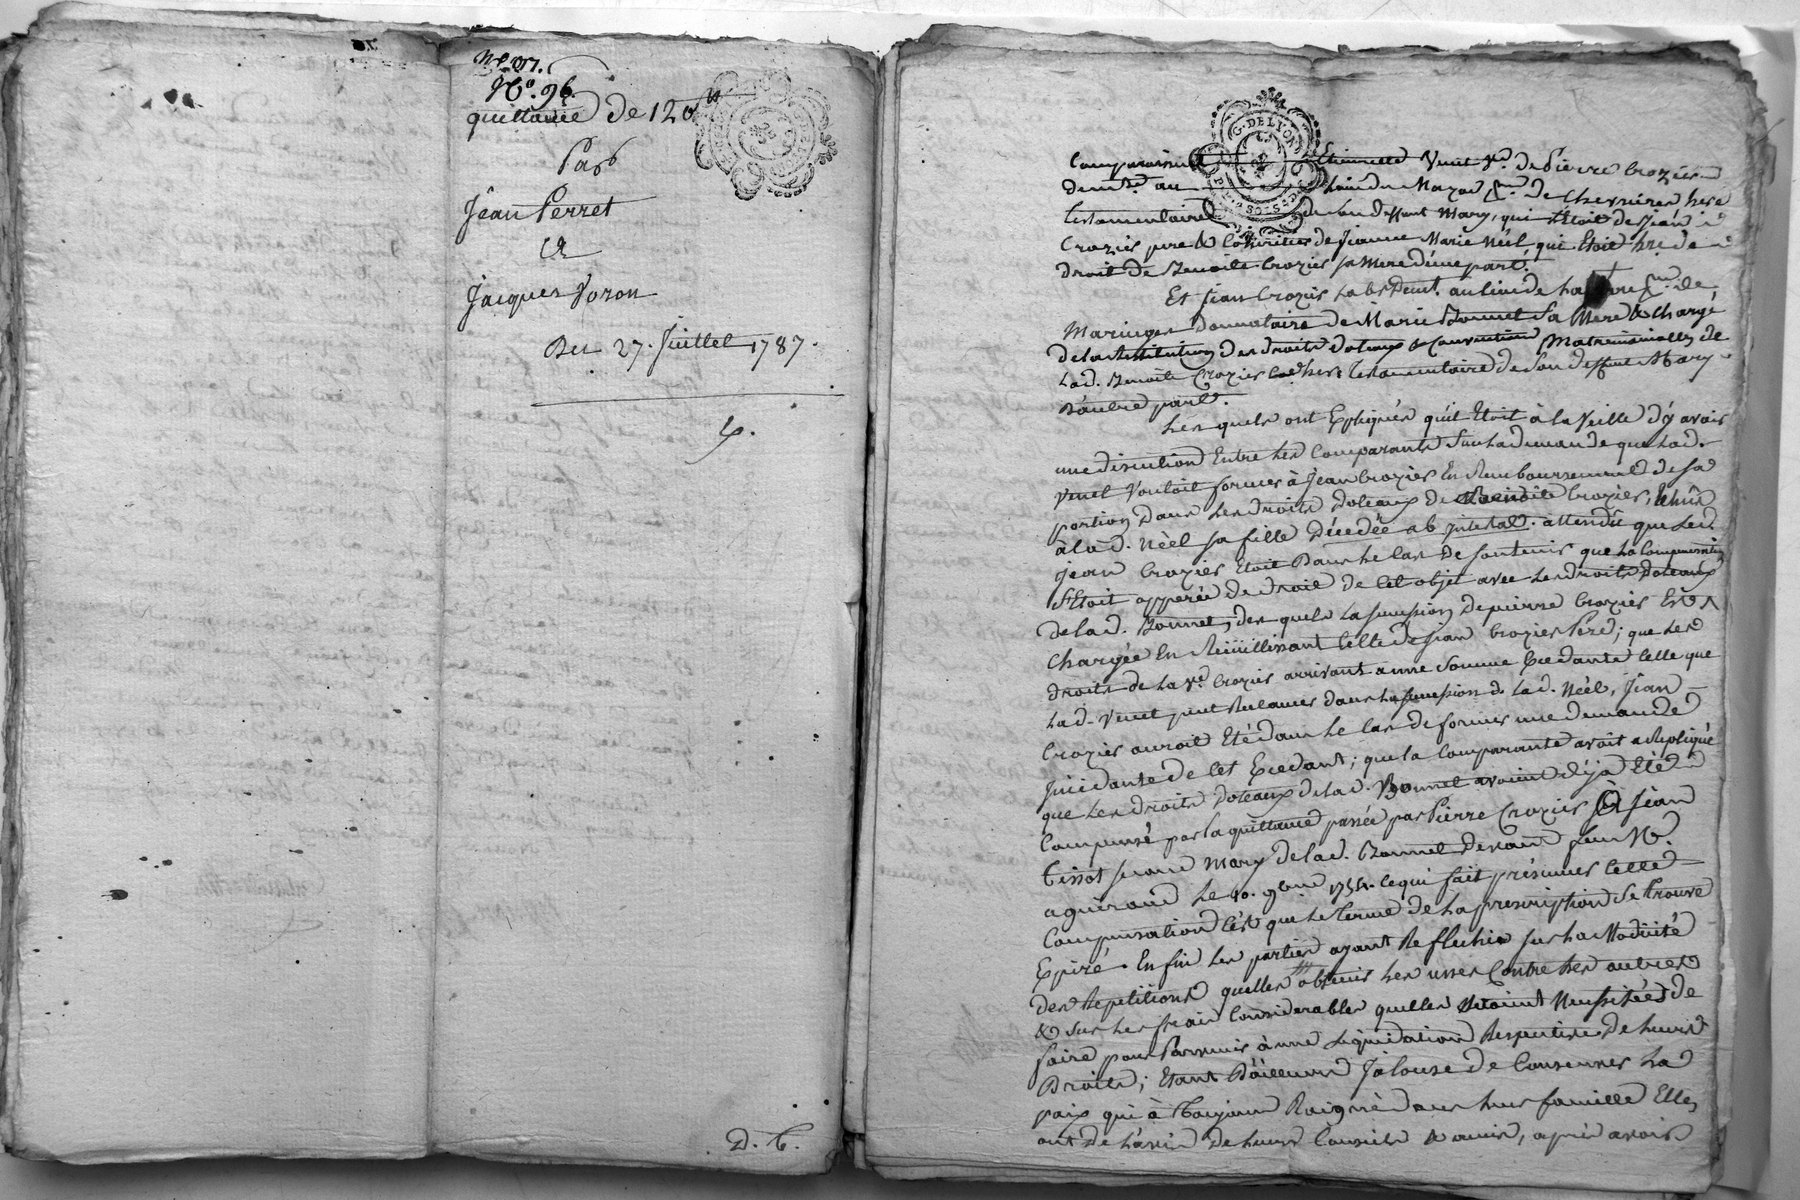 N°. 96.
quittance de 120 ₶
Par
Jean Perret
à
Jacques Voron
Du 27. Juillet 1787.
D. C.
G. DE LYON
Comparaissent Etiennette Venet ve. de Pierre Crozier
demte. au de Mazoa de Chevrieres here
testamentaire de son deffunt Mary, qui Etoit de Jean
Crozier pere & Cohéritier de Jeanne Marie Néel qui Etoit hre de
droit de Benoite Crozier sa Mere d'une part.
Et Jean Crozier habt. Demt. au lieu de la de
Maringes Donnataire de Marie Bonnet Sa Mere & Chargé
de la Restitution des droits dotaux & Convention Matrimonialles de
lad. Benoite Crozier here testamentaire de Son deffunt Mary
D'autre part.
Lesquels ont Expliqués qu'il Etoit à la Veille d'y avoir
une discution Entre les Comparants Sur la demande que lad.
Venet Vouloit former à Jean Crozier En Remboursement de sa
portion Dans les droits dotaux de Benoite Crozier,
à lad. Néel sa fille Décédée ab intestat. attendû que led.
Jean Crozier Etoit Dans le Cas De soutenir que la Compensation
S'Etoit opperée de droit de Cet objet avec les droits Dotaux
de lad. Bonnet, des quels la sucession de pierre Crozier Est
Chargée En Recuillissant Celle de Jean Crozier Pere; que les
droits de la ve. Crozier arrivant a une Somme Excedante Celle que
lad. Venet peut Reclamer dans la sucession de lad. Néel, Jean
Crozier auroit Eté dans le Cas de former une demande
Jncidante de Cet Excedant; que la Comparante avoit a Repliqué
que les droits Dotaux de lad. Bonnet avoient déja Eté
Compensé par la quittance passée par Pierre Crozier à Jean
Tissot second Mary de lad. Bonnet Devant feu Me.
aguiraud le 10. 9bre 1754. Ce qui fait présumer Cette
Compensation C'est que le terme de la prescription Se trouve
Expiré. Enfin les parties ayant Reflechis sur la Modicité
des Repetitions quelles obtenir les unes Contre les autres
& sur les frais Considerables quelles Etoient Nessesitées de
faire pour Parvenir à une Liquidation Respective De leurs
Droits; Etant D'ailleurs Jalouse de Conserver la
paix qui à Toujours Raigné dans leur famille Elles
ont de l'avis De leurs Conseils & amis, après avoir